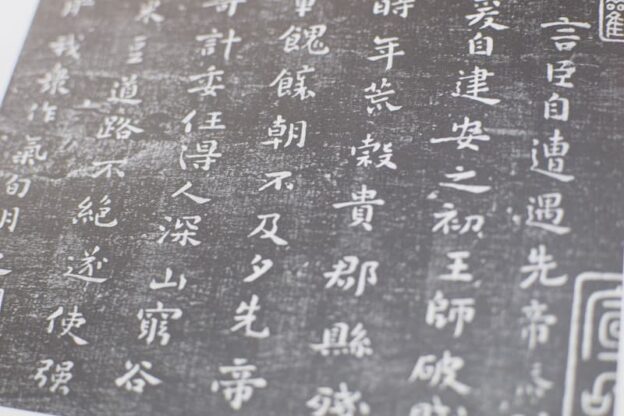 言臣自遭遇先帝
爰自建安之初王師破
時年荒穀貴郡縣殘
軍餽饟朝不及夕先帝
奇計委任得人深山窮谷
米豆道路不絕遂使强
我衆作氣旬月之